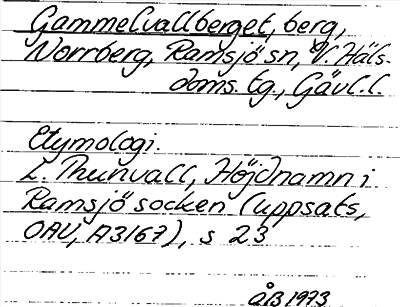 Gammelvallberget, berg,
Norrberg, Ramsjö sn, V. Häls-
doms. tg., Gävl. l.
Etymologi.
L. Thunvall, Höjdnamn i
Ramsjö socken (uppsats,
OAU, A3167), s 23
ÅB 1973